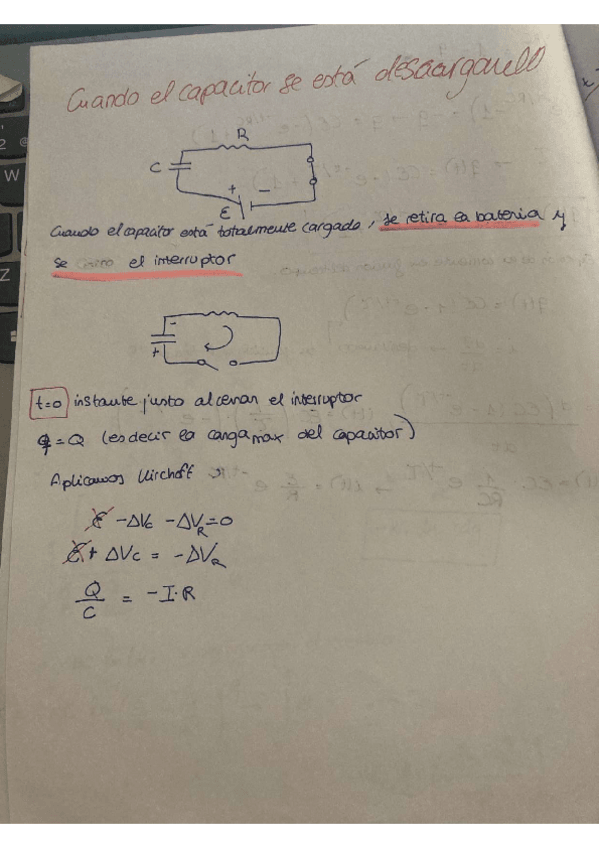 Cuando el capacitor se está descargando
R
C
+ -
ε
Cuando el capacitor está totalmente cargado, se retira la bateria y
se cierra el interruptor
-
+
t=0 instante justo al cerrar el interruptor
q=Q (es decir la carga max del capacitor)
Aplicamos Kirchoff
ε -ΔVc -ΔV_R=0
ε + ΔVc = -ΔV_R
Q/C = -I·R